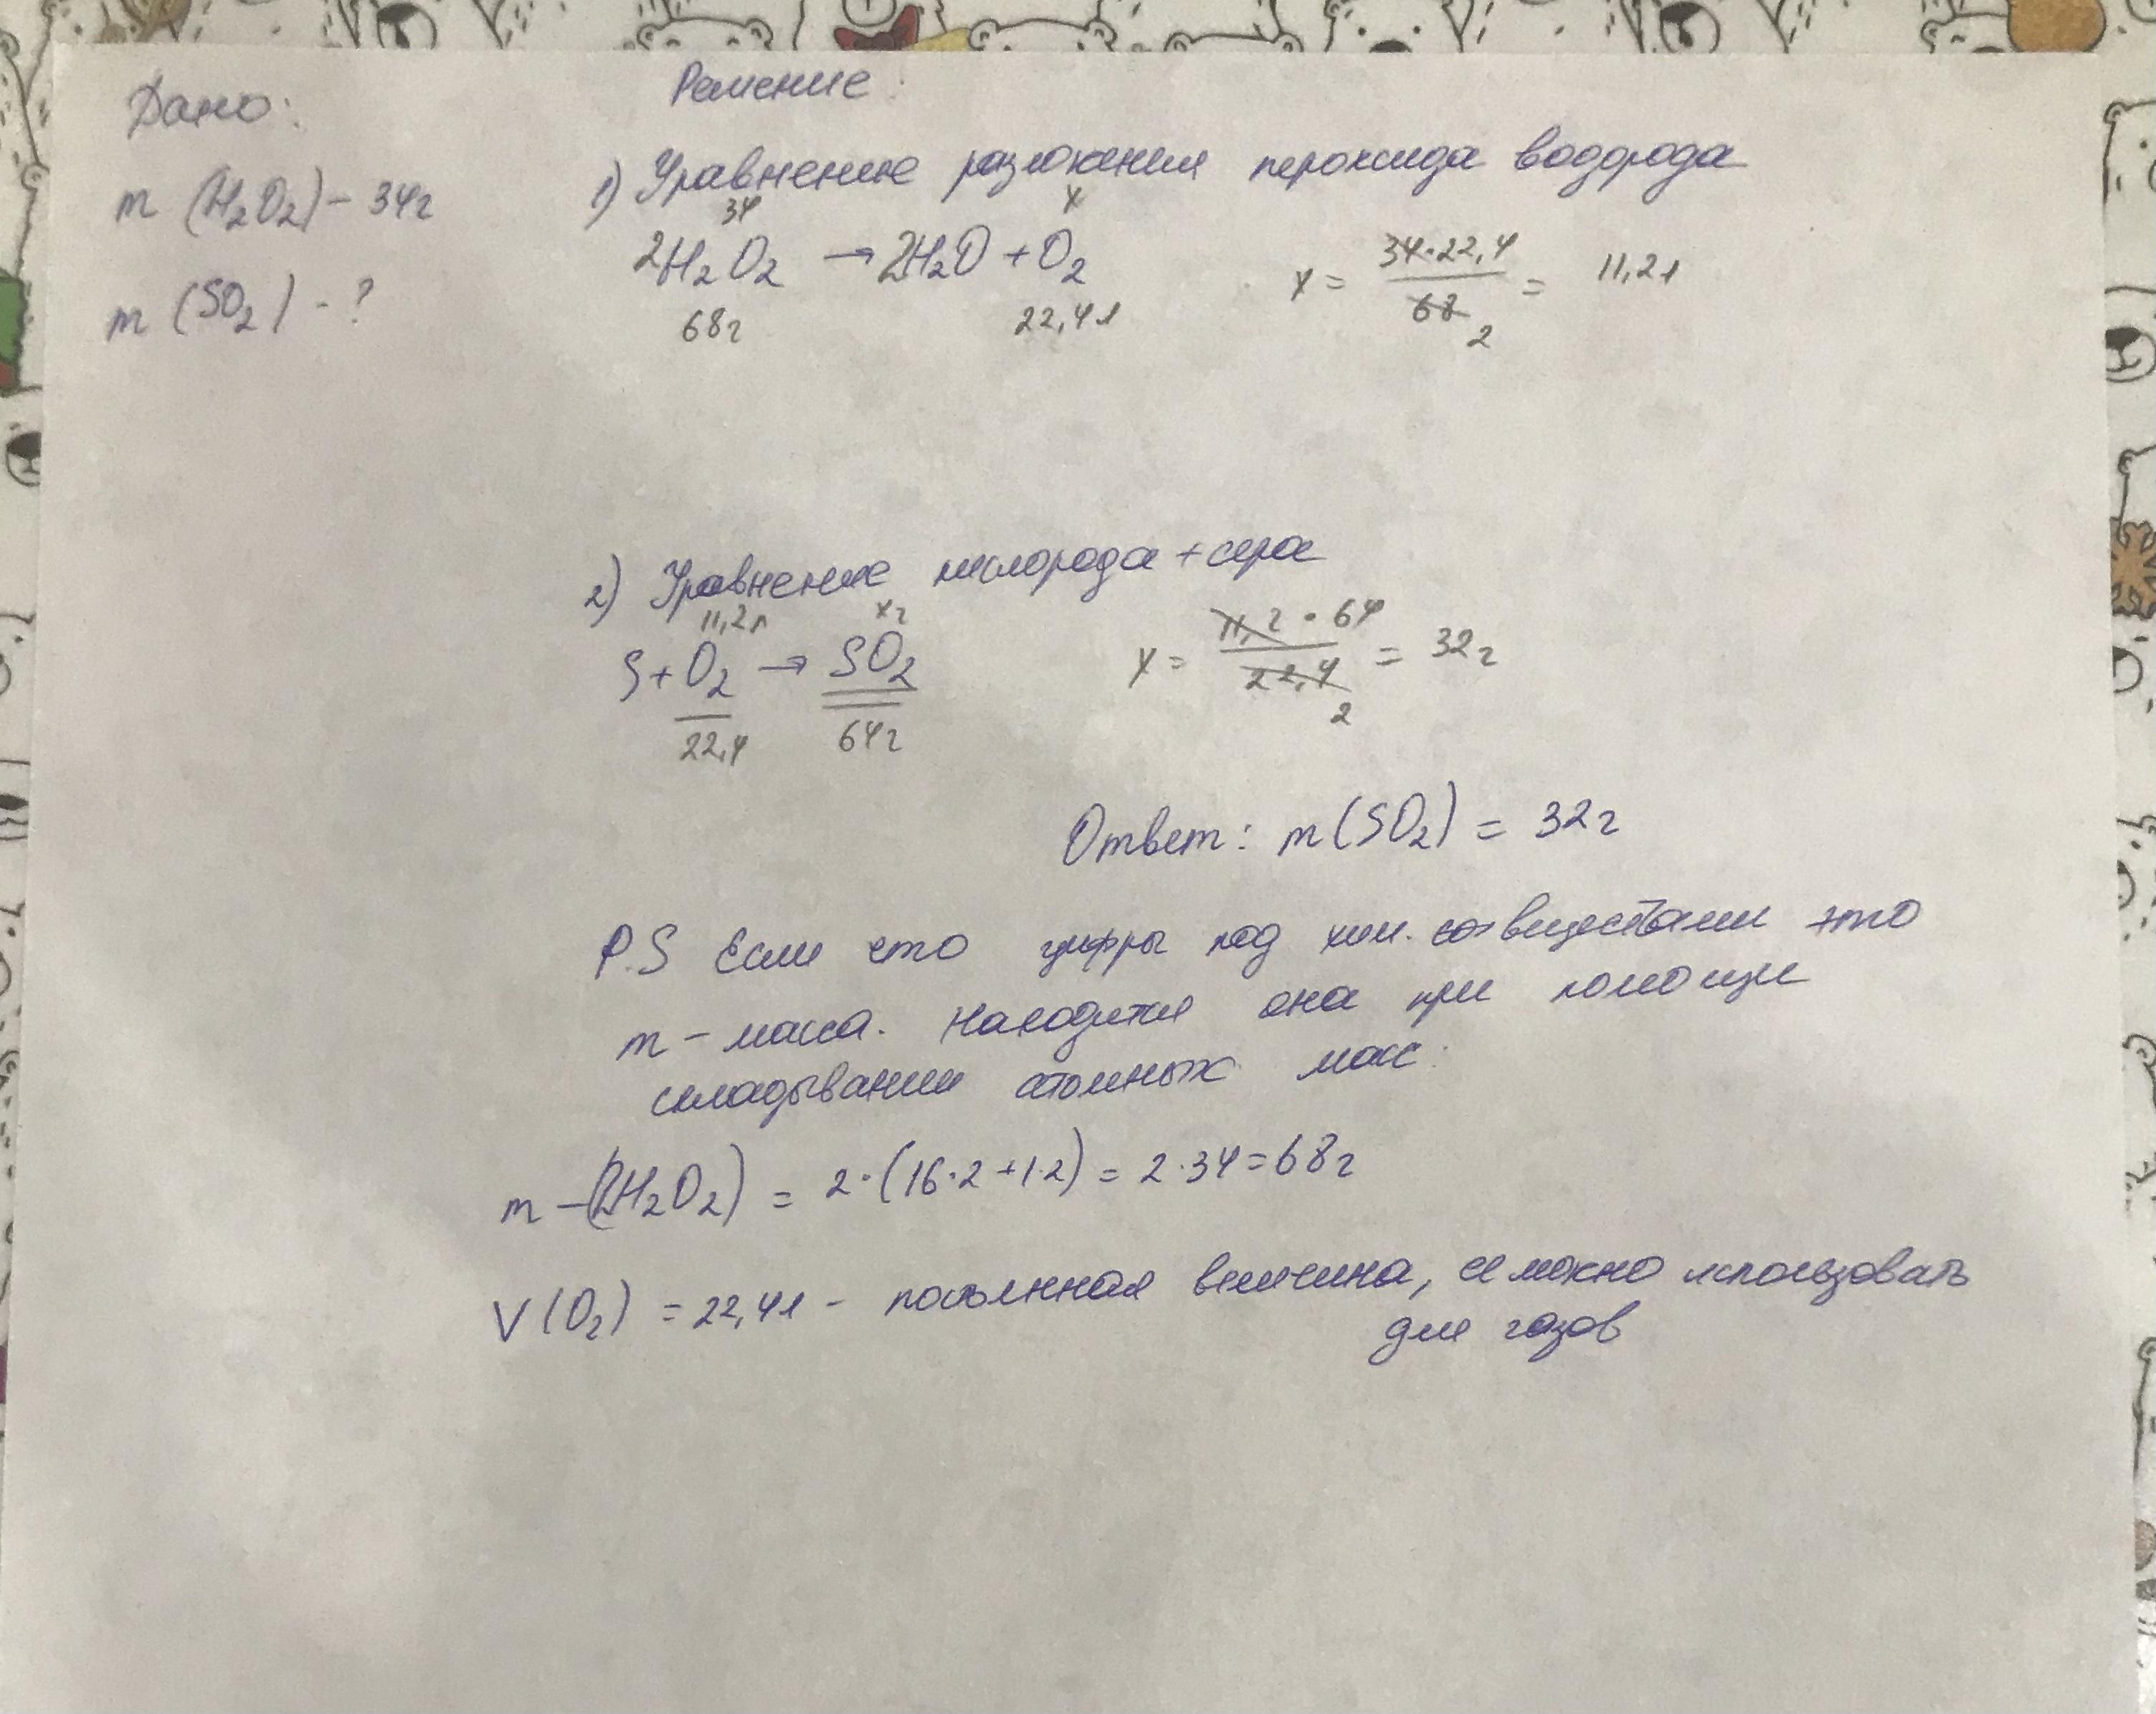 Дано:
m (H₂O₂) - 34г
m (SO₂) - ?
Решение:
1) Уравнение разложения пероксида водорода
34 x
2H₂O₂ → 2H₂O + O₂
68г 22,4л
x = 34·22,4 / 68 = 11,2л
2
2) Уравнение кислорода + сера
11,2л xг
S + O₂ → SO₂
22,4 64г
x = 11,2 · 64 / 22,4 = 32г
2
Ответ: m (SO₂) = 32г
P.S Если что цифры под хим. веществами это
m - масса. Находится она при помощи
складывании атомных масс:
m - (2H₂O₂) = 2·(16·2+1·2) = 2·34=68г
V (O₂) = 22,4л - постоянная величина, её можно использовать
для газов